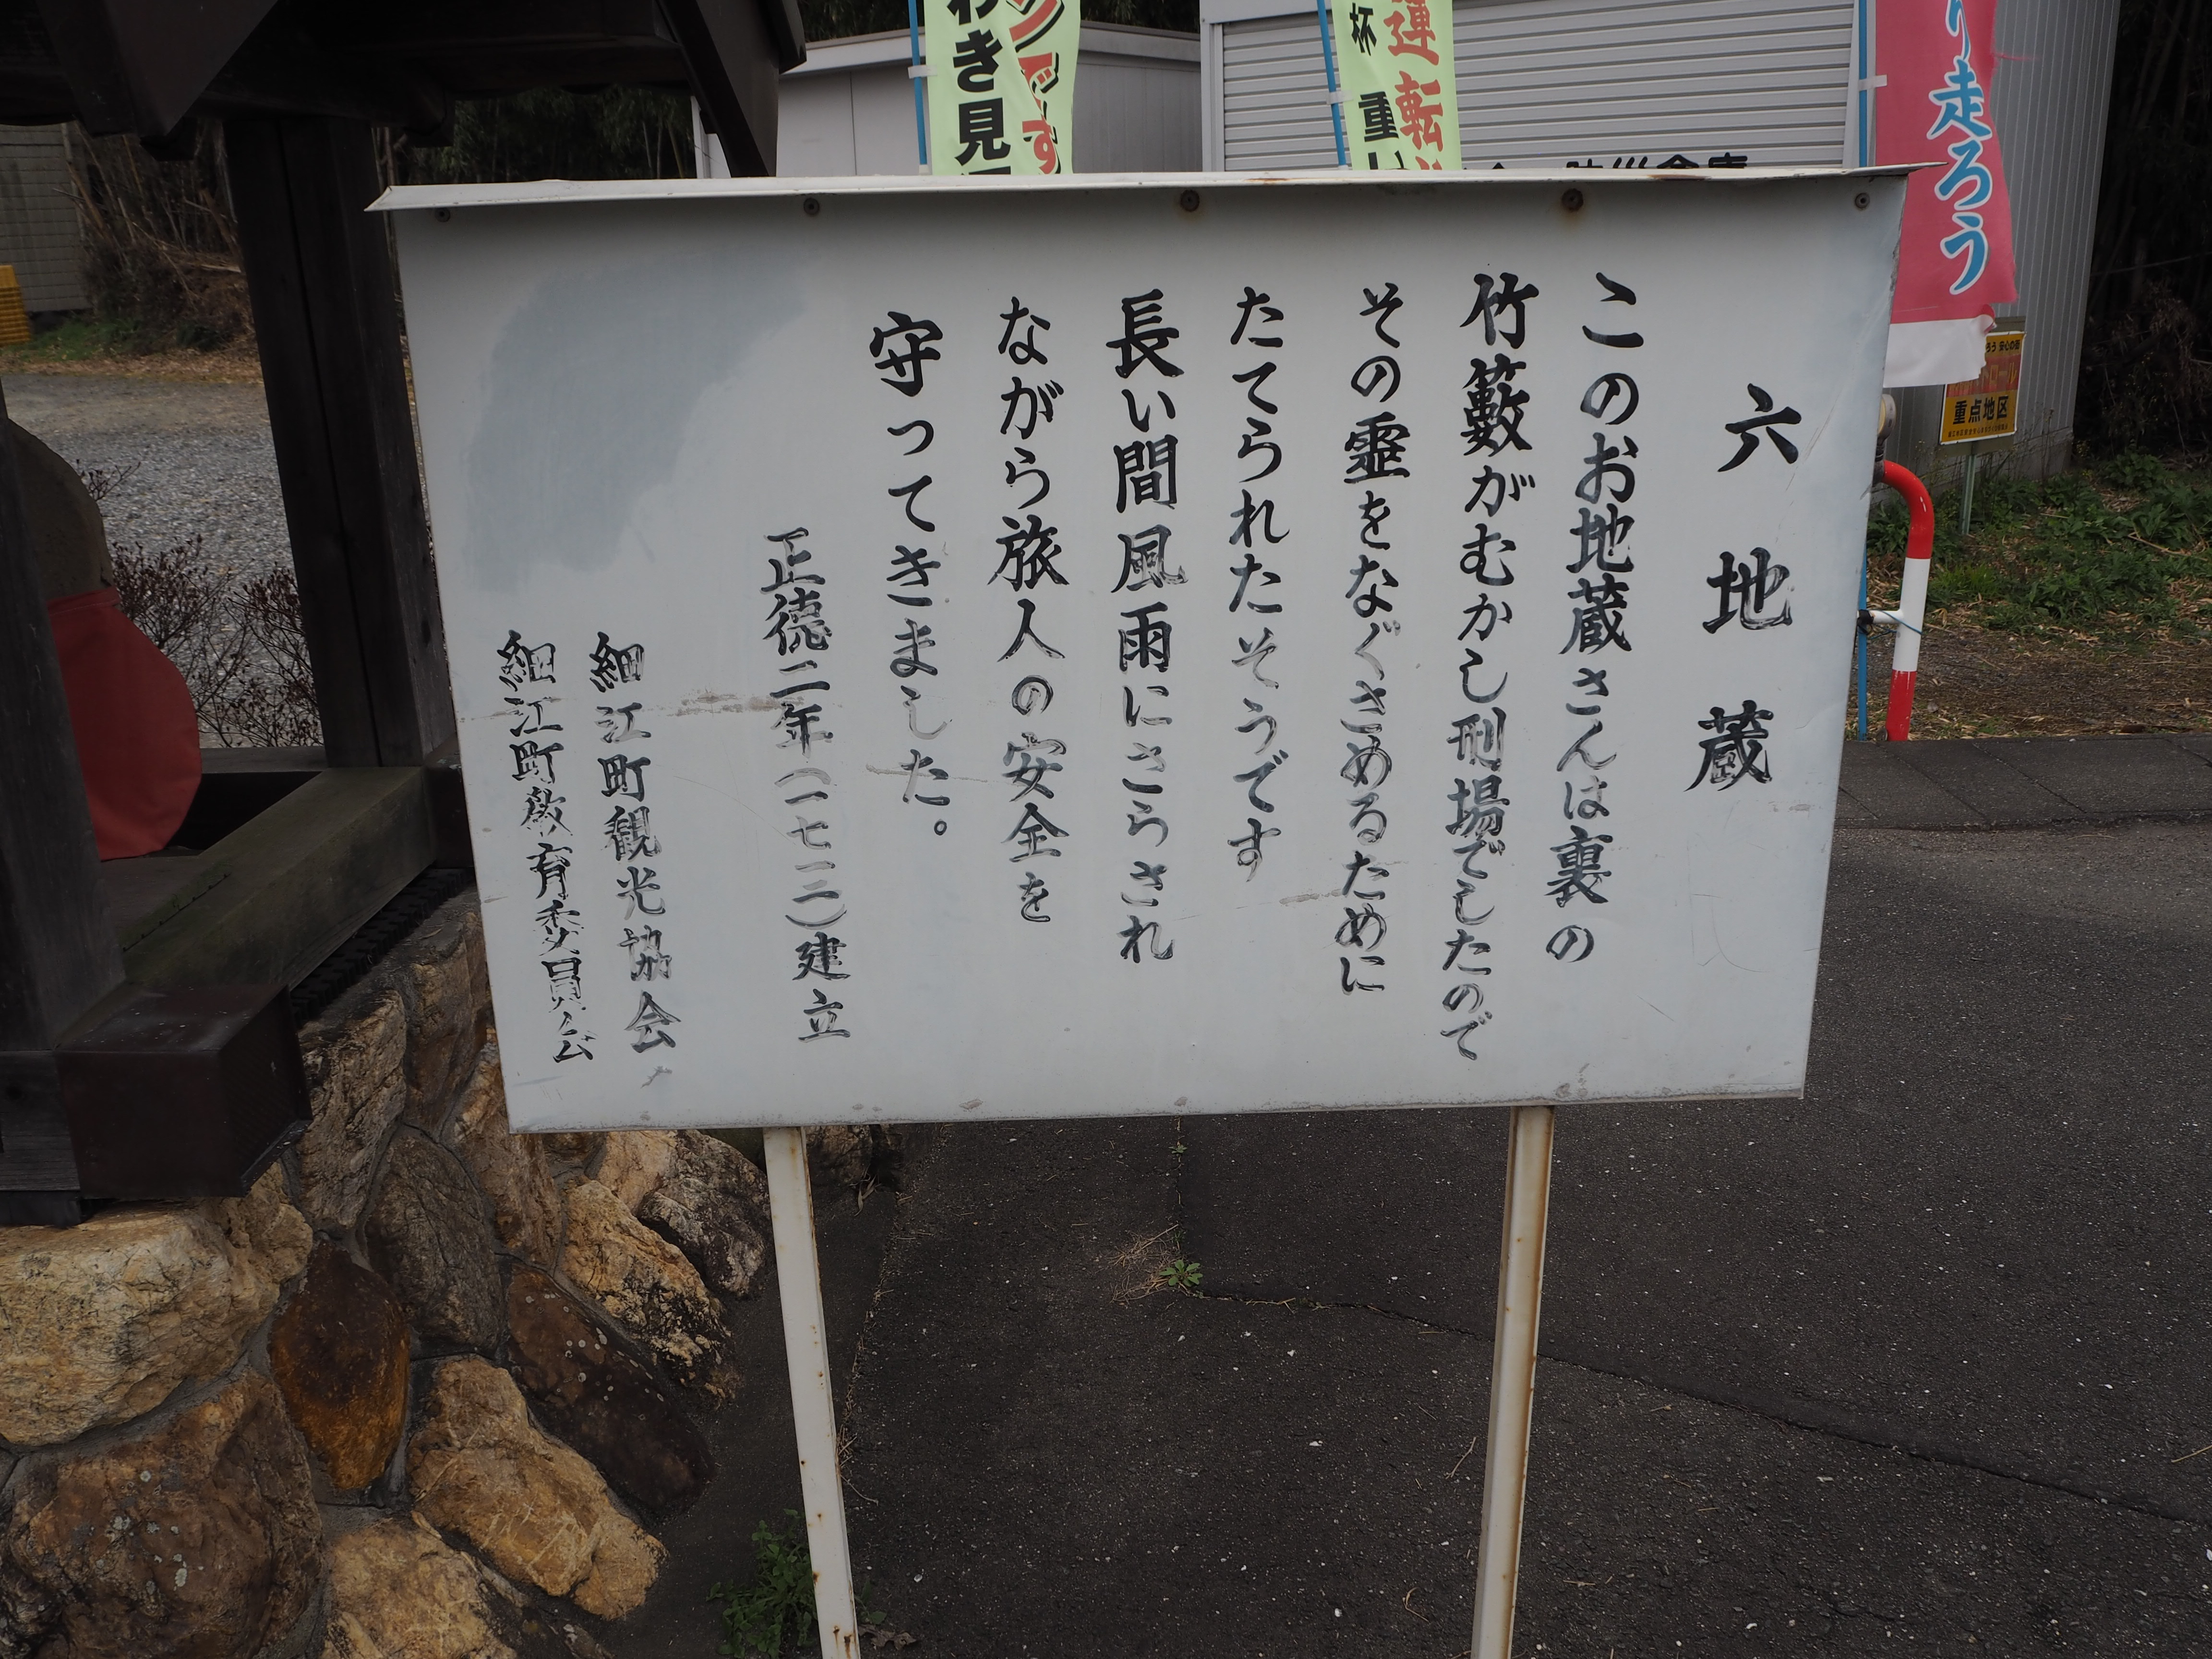 六地蔵
このお地蔵さんは裏の
竹籔がむかし刑場でしたので
その霊をなぐさめるために
たてられたそうです
長い間風雨にさらされ
ながら旅人の安全を
守ってきました。
正徳二年(一七一二)建立
細江町観光協会
細江町教育委員会
わき見
ンです
運転
杯 重
り走ろう
防災倉庫
重点地区